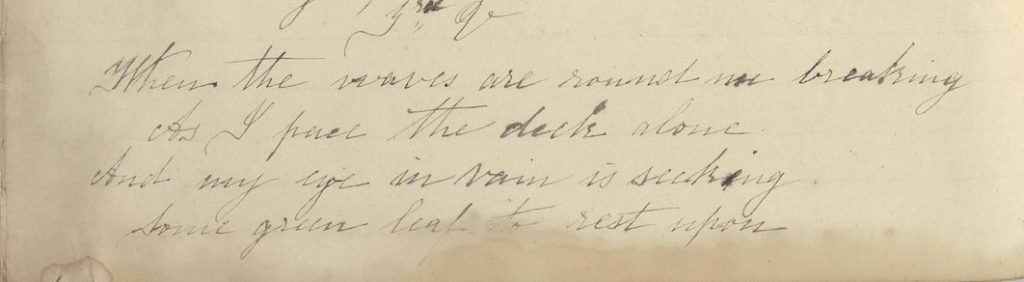 3rd
When the waves are round me breaking
As I pace the deck alone
And my eye in vain is seeking
Some green leaf to rest upon